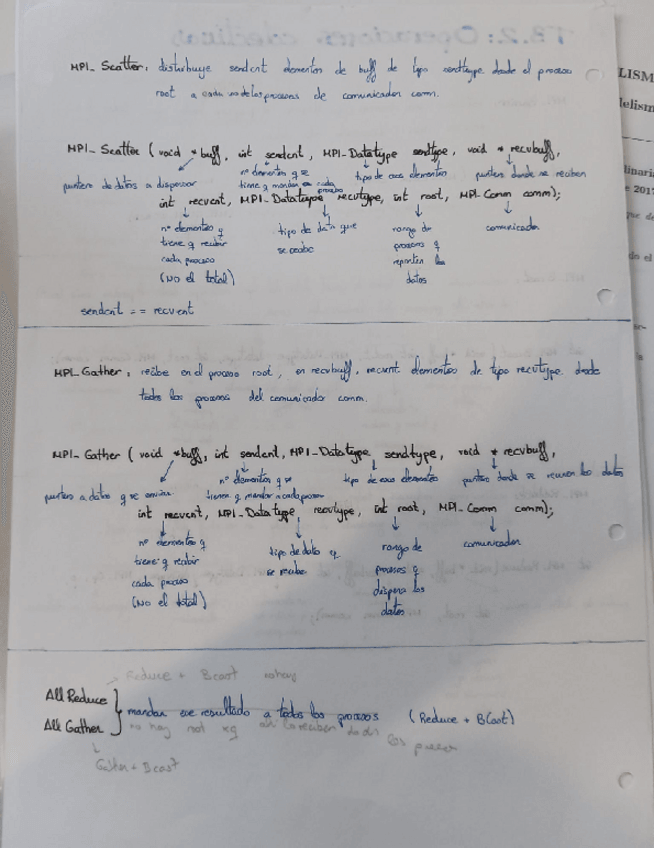 MPI_Scatter: distribuye sendcnt elementos de buff de tipo sendtype desde el proceso
root a cada uno de los procesos de comunicador comm.
MPI_Scatter (void *buff, int sendcnt, MPI_Datatype sendtype, void *recvbuff,
puntero de datos a dispersar
nº elementos q se
tiene q mandar a cada
proceso
tipo de esos elementos
puntero donde se reciben
int recvcnt, MPI_Datatype recvtype, int root, MPI_Comm comm);
nº elementos q
tiene q recibir
cada proceso
(NO el total)
tipo de dato que
se recibe
rango de
procesos q
reparten los
datos
comunicador
sendcnt == recvcnt
MPI_Gather: recibe en el proceso root, en recvbuff, recvcnt elementos de tipo recvtype desde
todos los procesos del comunicador comm.
MPI_Gather (void *buff, int sendcnt, MPI_Datatype sendtype, void *recvbuff,
puntero a datos q se envían
nº elementos q se
tienen q mandar a cada proceso
tipo de esos elementos
puntero donde se reunen los datos
int recvcnt, MPI_Datatype, recvtype, int root, MPI_Comm comm);
nº elementos q
tiene q recibir
cada proceso
(NO el total)
tipo de dato q
se recibe
rango de
procesos q
dispersa los
datos
comunicador
Reduce + Bcast
All Reduce
All Gather
mandan ese resultado a todos los procesos (Reduce + Bcast)
no hay root xq lo reciben todos
los procesos
Gather + Bcast
LISM
lelism
linaria
e 2017